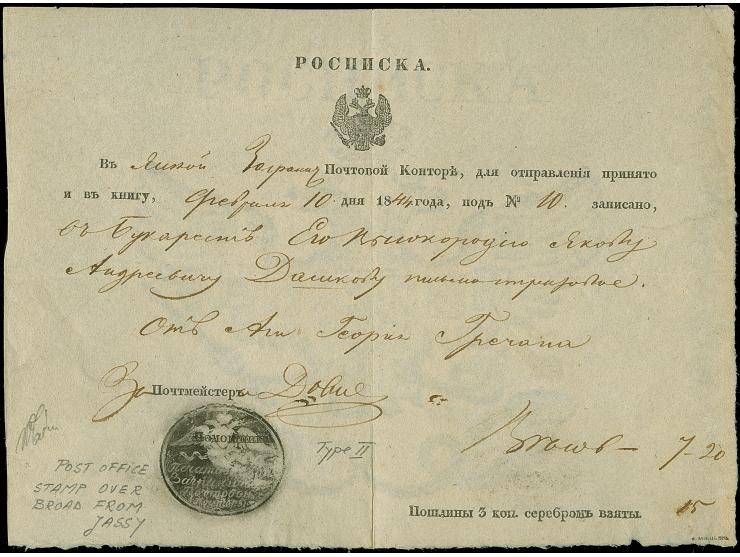 РОСПИСКА.
Въ Яской Загранич Почтовой Конторѣ, для отправленія принято
и въ книгу, Февраля 10 дня 1844 года, подъ № 10. записано,
въ Бухарестъ Его Высокородію Якову
Андреевичу Дашкову письмо страховое.
Отъ Аги Георгія Гречана
За Почтмейстеръ
Помощникъ
Печать
Почтовой
Конторы
Type II
Вѣсъ 7-20
POST OFFICE
STAMP OVER
BROAD FROM
JASSY
Пошлины 3 коп. серебромъ взяты. 15